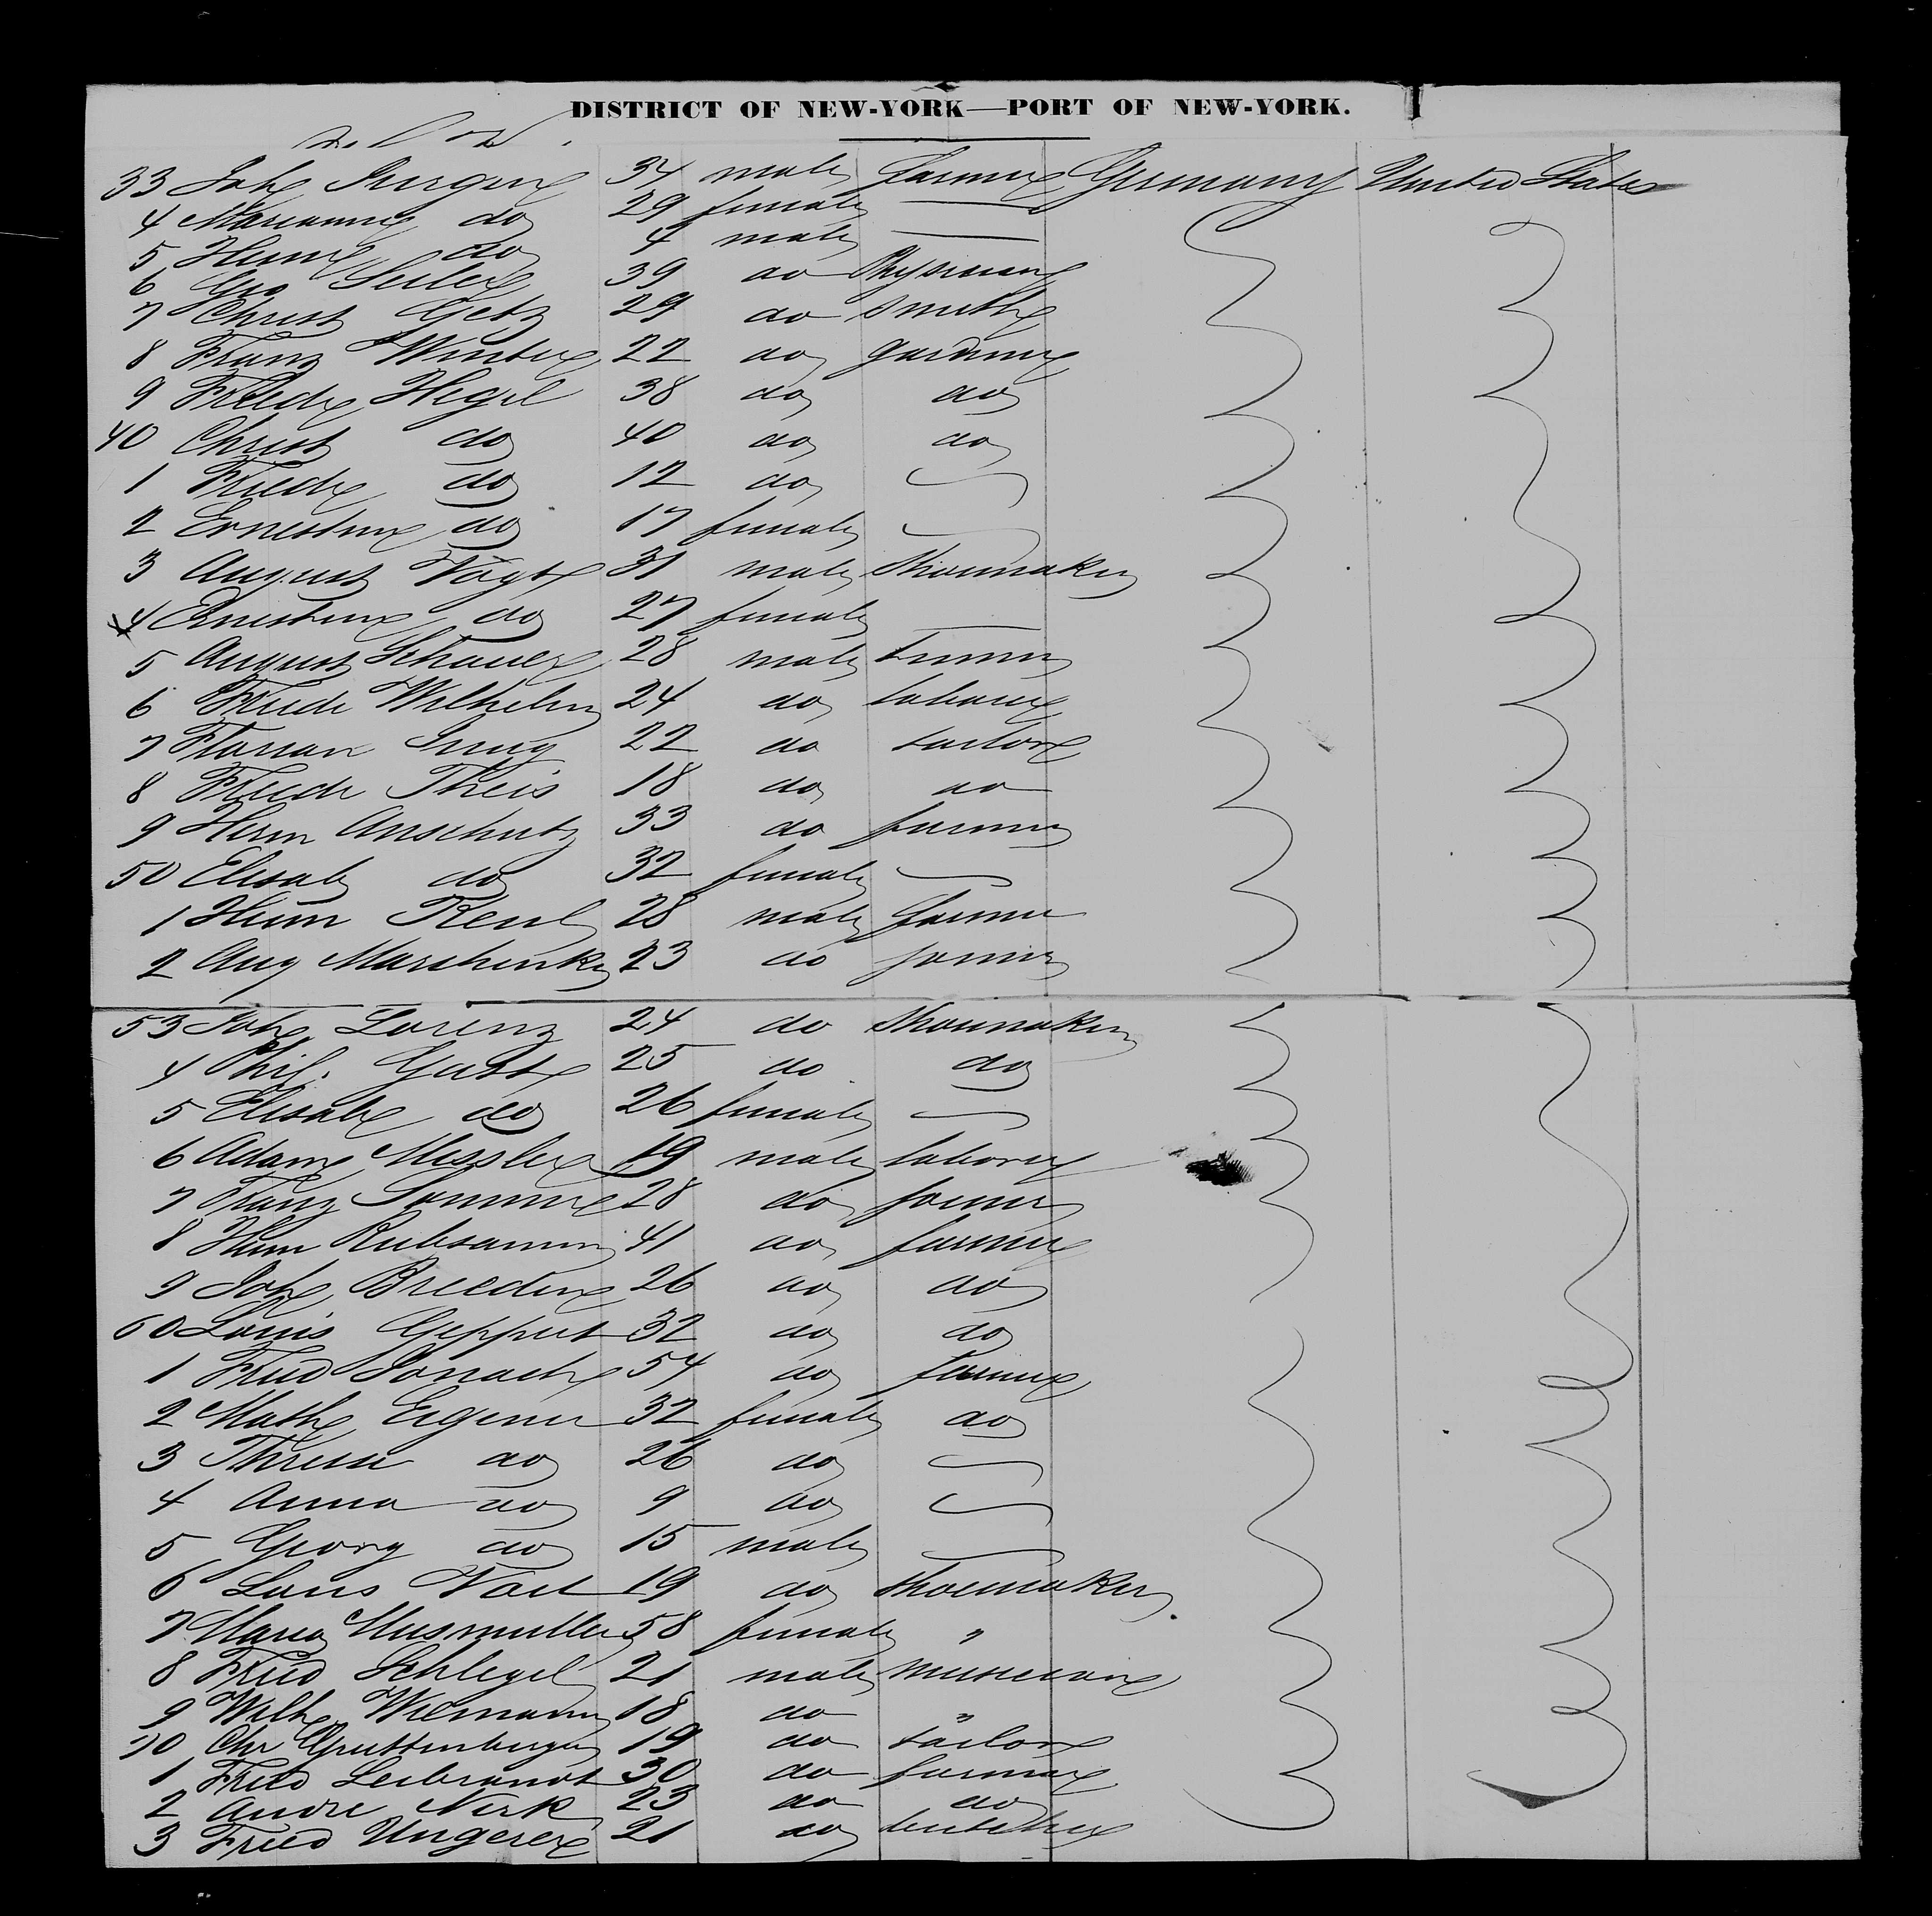 DISTRICT OF NEW-YORK—PORT OF NEW-YORK.
33 Joh Jurgens 34 male farmer Germany United States
4 Marianne do 29 female —
5 do 4 male —
6 Geo Seiler 39 do Physician
7 Christ Getz 29 do smith
8 Franz Winter 22 do gardener
9 Friedr Hegel 38 do do
40 Christ do 40 do do
1 Friedr do 12 do
2 Ernestine do 17 female
3 August Vogt 31 male Shoemaker
4 Ernestine do 27 female —
5 August Schauer 28 male
6 Friedr Wilhelm 24 do laborer
7 Florian 22 do tailor
8 Friedr Theis 18 do do
9 Herm Anschutz 33 do farmer
50 Elisab do 32 female
1 Heinr 28 male farmer
2 Aug 23 do joiner
53 Joh Lorenz 24 do Shoemaker
4 Phil. 25 do do
5 Elisab do 26 female
6 Adam Messler 19 male laborer
7 Franz Sommer 28 do joiner
8 Heinr Rubsamen 41 do farmer
9 Joh 26 do do
60 Louis Geppert 32 do do
1 Fried 54 do farmer
2 Math 32 female do
3 Therese do 26 do
4 Anna do 9 do
5 Georg do 15 male
6 Louis 19 do Shoemaker
7 Maria 58 female "
8 Fried Schlegel 21 male musician
9 Wilh 18 do "
70 Chr 19 do tailor
1 Fried Leibrandt 30 do farmer
2 Andre 23 do do
3 Fried Ungerer 21 do butcher